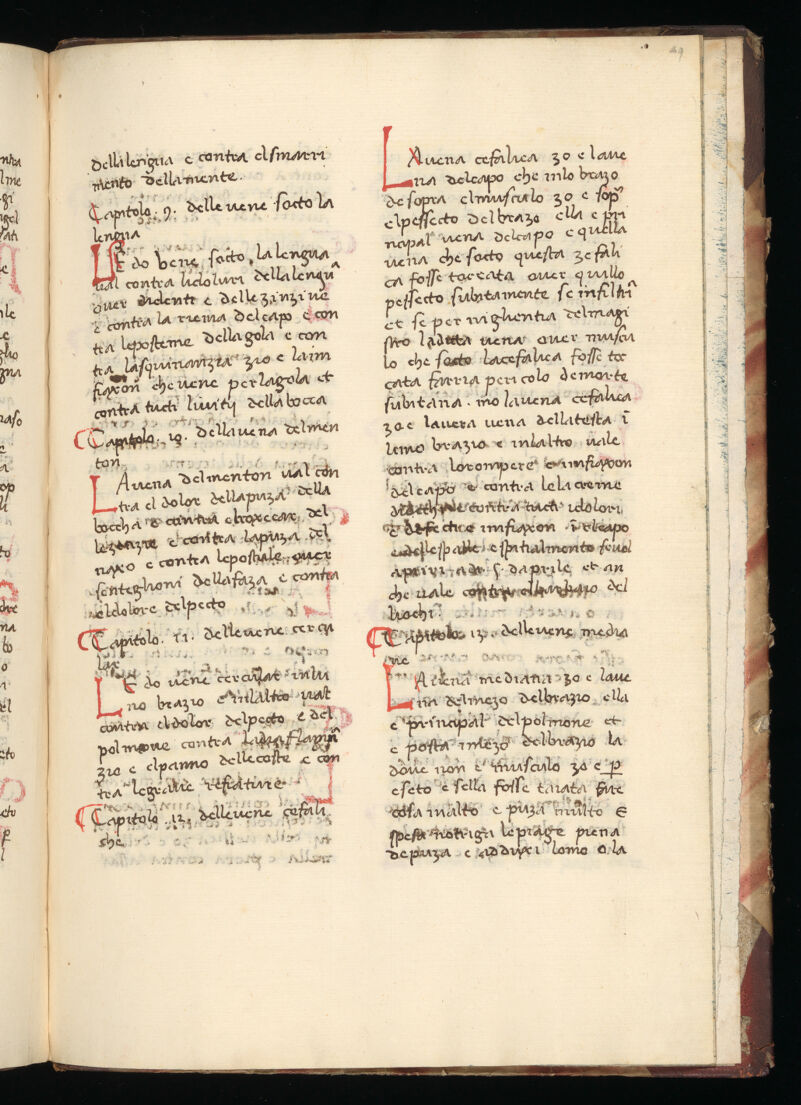 49
della lengua e contra el smarri
mento della mente.
Capitolo .9. delle uene socto la
lengua
LE do vene socto la lengua
ual contra li doluri della lengua
ouer di denti e delle zinziue
e contra la riema del capo e con
tra leposteme della gola e con
tra la squinanzia zio e la in
fiaxon che uene per la gola et
contra tucti li uitij della bocca
Capitolo .10. della uena del men
ton
LA uena del menton ual con
tra el dolor della puza della
boccha e contra el roxecar del
le zenzie e contra la puza del
naxo e contra le postule ouer
senteglioni della faza e contra
el dolore del pecto
Capitolo .11. delle uene cerca
lar
LE do uene cerculat in lu
no brazio e in laltro ual
contra el dolor del pecto e del
polmone contra
zio e el panno delle coste e con
tra le graue refiature
Capitolo .12. delle uene cefali
che
LA uena cefalica zo e la ue
na del capo che in lo brazo
de sopra el musculo zo e sop
el pessecto del brazo ella e pri
ncipal uena del capo e quella
uena che socto questa zefali
ca fosse toccata ouer quillo
pessecto subitamente se infiltri
et se per nighentia del magi
stro la ditta uena ouer muscu
lo che socto la cefalica fosse toc
cata farria pericolo de morte
subitana . mo la uena cefalica
zo e la uera uena della testa i
luno brazio e in laltro uale
contra lo rompere e infiaxon
del capo e contra le lacreme
contra tucti i dolori
e defecti e infiaxon i el capo
e delle spalle e spitialmento se uol
aprire a di 5. daprile et an
che uale contra del
li ochi
Capitolo 13. delle uene media
ne
LA uena mediana zo e la ue
na del mezo del brazio ella
e principal del polmone et
e posta in mezo del brazio la
doue non e musculo zo e p
eseto e sella fosse taiata
cosa in alto e puza multo e
spesa le piage piena
de puza e adduxi lomo o la